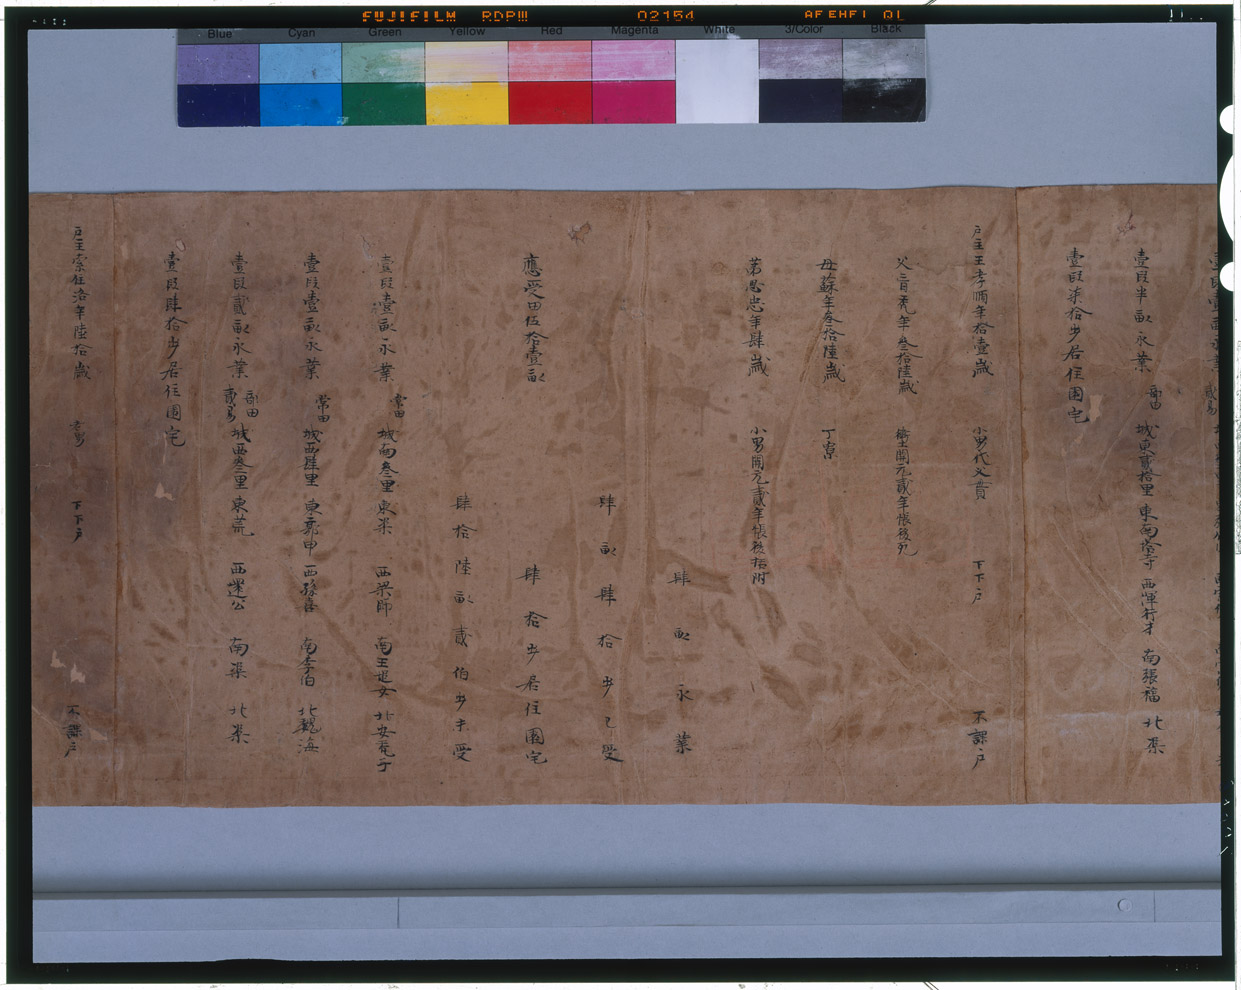 FUJIFILM RDPIII 02154
Blue Cyan Green Yellow Red Magenta White 3/Color Black
壹段半畝永業 部田 城東貳拾里 東南 寺 西 南張福 北渠
壹段柒拾步居住園宅
戶主王孝順年拾壹歲 小男代父貫 下下戶 不課戶
父 年叁拾陸歲 衛士開元貳年帳後死
母蘇年叁拾陸歲 丁寡
弟思忠年肆歲 小男開元貳年帳後括附
肆畝永業
肆畝肆拾步已受
應受田伍拾壹畝 肆拾步居住園宅
肆拾陸畝貳伯步未受
壹段壹畝永業 常田 城南叁里 東渠 西梁師 南王 北安
壹段壹畝永業 常田 城西肆里 東郭申 西孫喜 南李伯 北魏海
壹段貳畝永業 部田 貳易 城西叁里 東荒 西還公 南渠 北渠
壹段肆拾步居住園宅
戶主索住洛年陸拾歲 老男 下下戶 不課戶